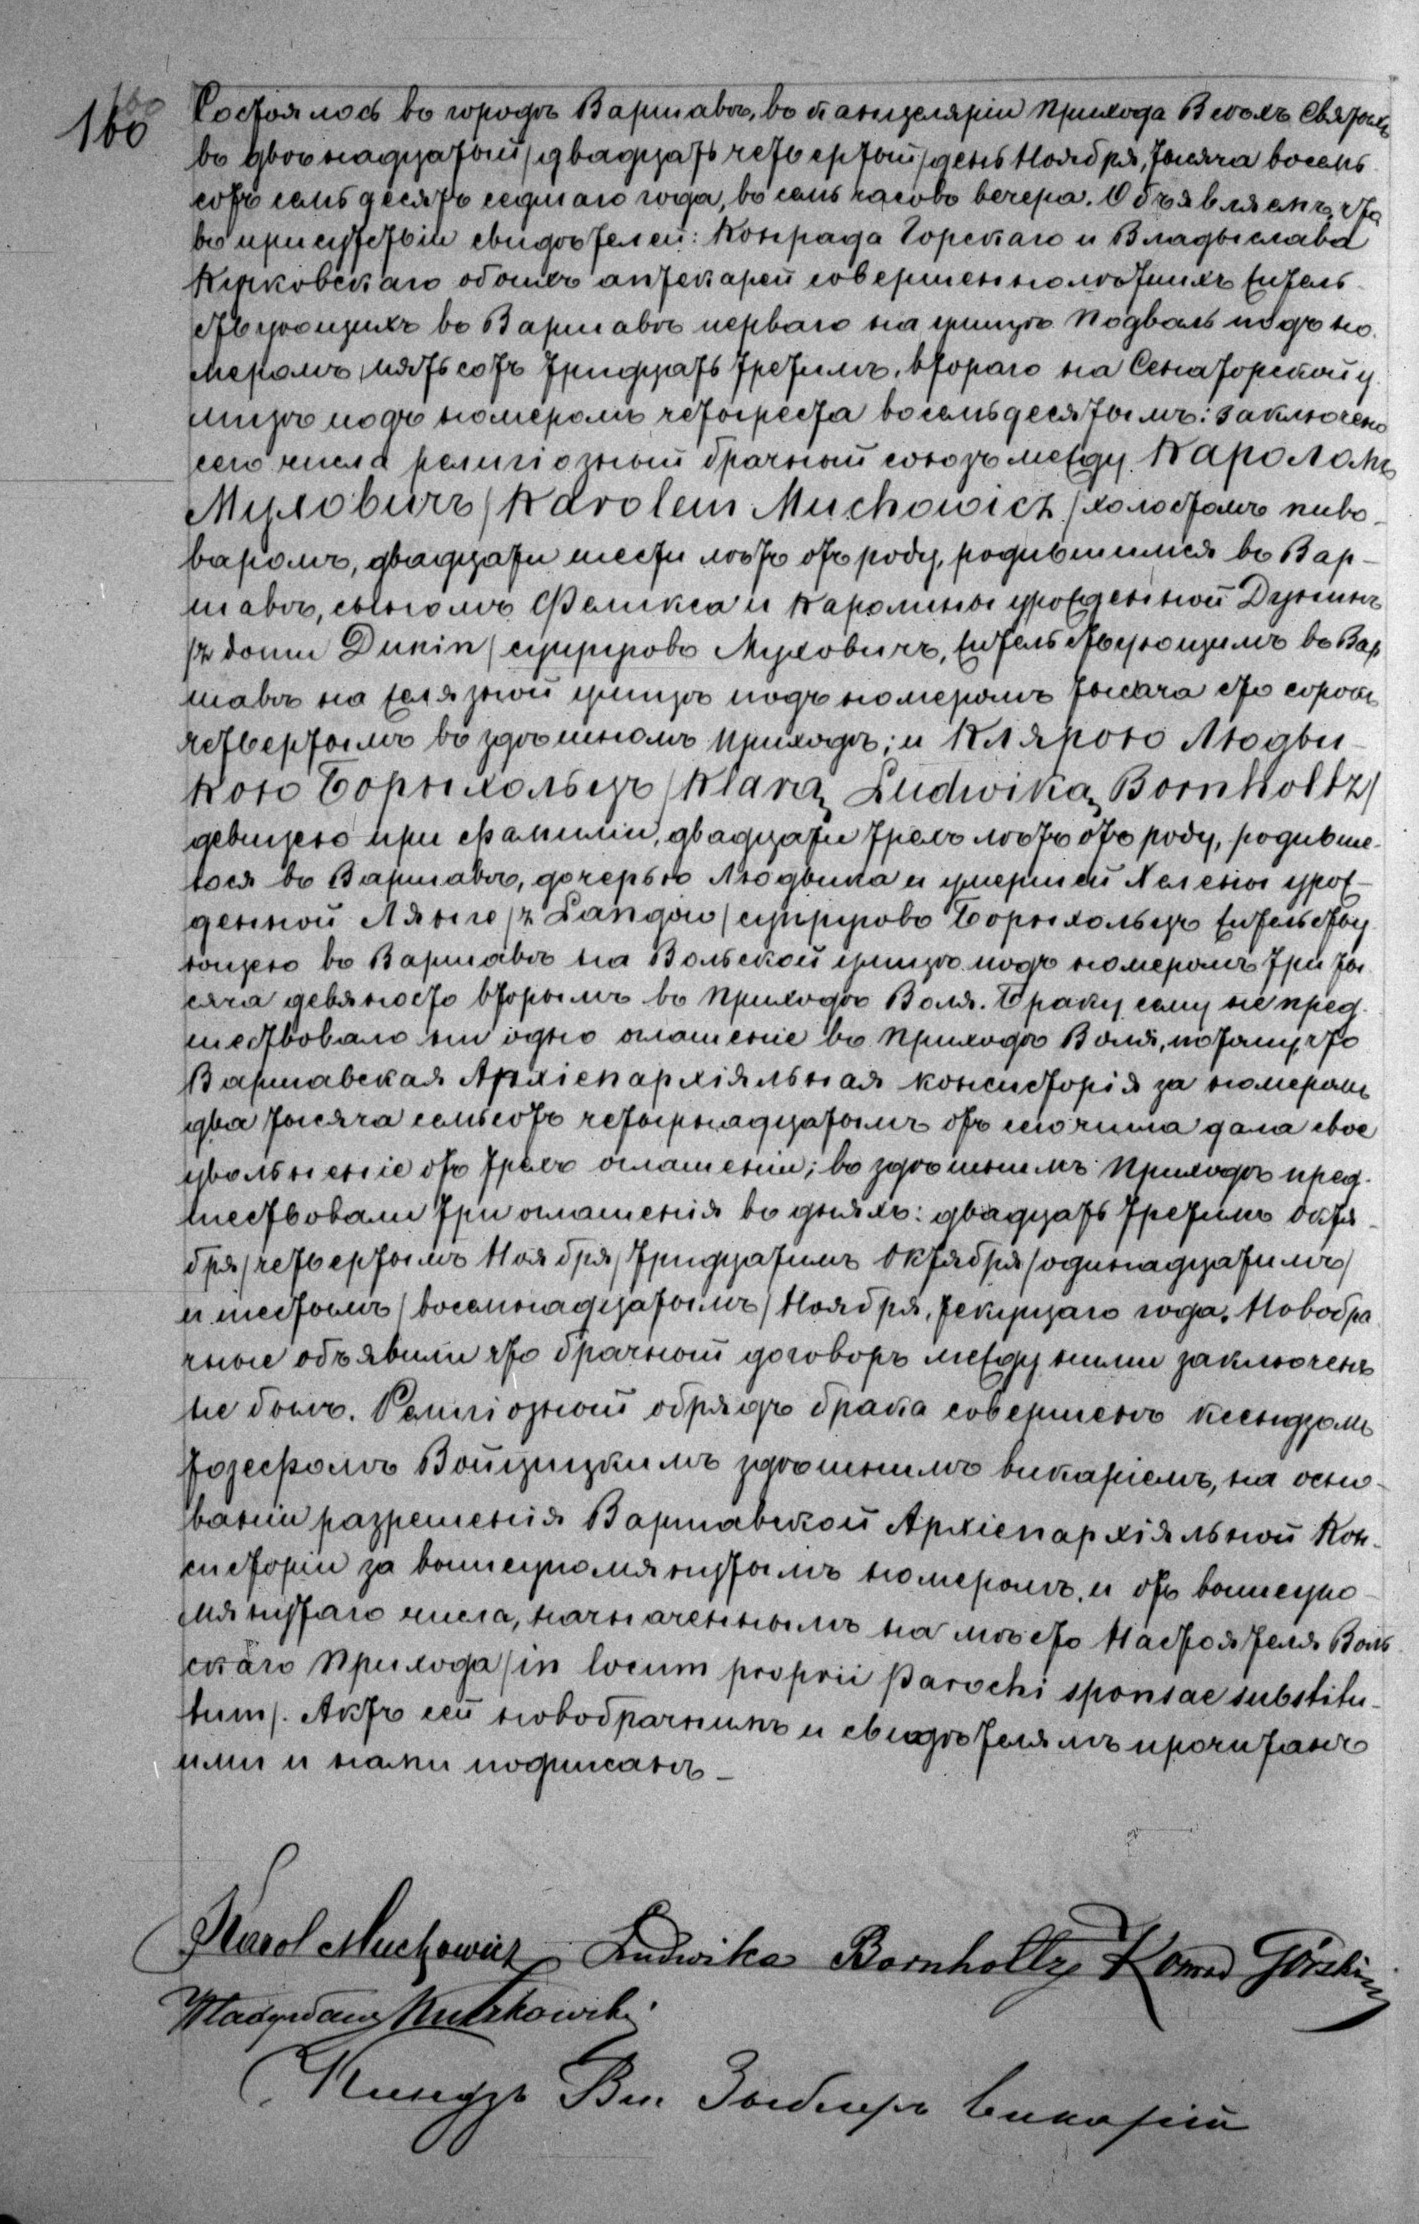 160
Состоялось въ городѣ Варшавѣ, въ канцеляріи прихода Всѣхъ Святыхъ
въ двѣнадцатый /двадцать четвертый/ день Ноября, тысяча восемь
сотъ семьдесятъ седмаго года, въ семь часовъ вечера. Объявляемъ, что
въ присутствіи свидѣтелей: Конрада Горскаго и Владыслава
Кучковскаго обоихъ аптекарей совершеннолѣтнихъ житель-
ствующихъ въ Варшавѣ перваго на улицѣ Подваль подъ но-
меромъ пятьсотъ тридцать третимъ, втораго на Сенаторской у-
лицѣ подъ номеромъ четыреста восемьдесятымъ: заключено
сего числа религіозный брачный союзъ между Кароломъ
Муховичъ /Karolem Muchowicz/ холостомъ пиво-
варомъ, двадцати шести лѣтъ отъ роду, родившимся въ Вар-
шавѣ, сыномъ Феликса и Каролины урожденной Дунинъ
/z domu Dunin/ супруговъ Муховичъ, жительствующимъ въ Вар
шавѣ на желязной улицѣ подъ номеромъ тысяча сто сорокъ
четвертымъ въ здѣшномъ приходѣ; и Клярою Людви-
кою Борнхольцъ /Klarą Ludwiką Bornholtz/
девицею при фамиліи, двадцати трехъ лѣтъ отъ роду, родивше-
юся въ Варшавѣ, дочерью Людвика и умершей Хелены урож-
денной Лянге /z Langów/ супруговъ Борнхольцъ жительству
ющею въ Варшавѣ на Вольской улицѣ подъ номеромъ три ты
сяча девяносто вторымъ въ приходѣ Воля. Браку сему не пред-
шествовало ни одно оглашеніе въ приходѣ Воля, потому, что
Варшавская Архіепархіяльная консисторія за номеромъ
два тысяча семьсотъ четырнадцатымъ отъ сего числа дала свое
увольненіе отъ трехъ оглашеніи; въ здѣшнимъ приходѣ пред-
шествовали три оглашенія въ дняхъ: двадцать третимъ октя-
бря /четвертымъ Ноября/ тридцатимъ Октября /одинадцатимъ/
и шестымъ /восемнадцатымъ/ Ноября, текущаго года. Новобра
чные объявили что брачный договоръ между ними заключенъ
не былъ. Религіозный обрядъ брака совершенъ ксендзомъ
Іозефомъ Войцицкимъ здѣшнимъ викаріемъ, на осно-
ваніи разрешенія Варшавской Архіепархіяльной Кон-
систоріи за вышеупомянутымъ номеромъ, и отъ вышеупо-
мянутаго числа, начначеннымъ на мѣсто Настоятеля Воль
скаго прихода /in locum proprii parochi sponsae substitu-
tum/. Актъ сей новобрачнимъ и свидѣтелямъ прочитанъ
ими и нами подписанъ –
Karol Muchowicz Ludwika Bornholtz Konrad Górski
Władysław Kuczkowski
Ксендзъ Вл. викарій